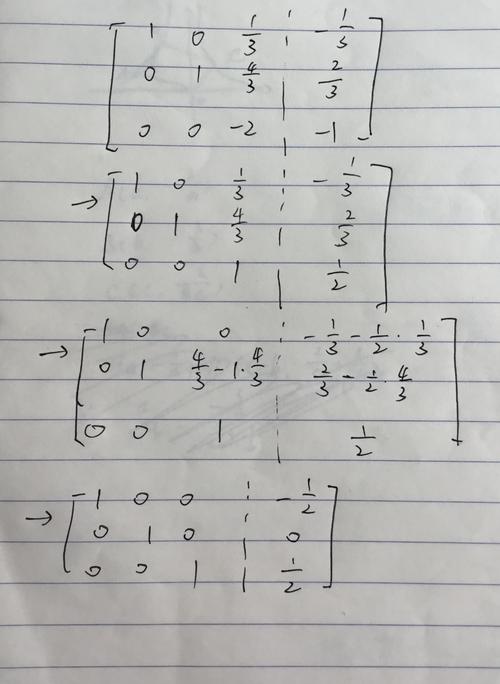 1 0 1/3 ¦ -1/3
0 1 4/3 ¦ 2/3
0 0 -2 ¦ -1
→ 1 0 1/3 ¦ -1/3
0 1 4/3 ¦ 2/3
0 0 1 ¦ 1/2
→ 1 0 0 ¦ -1/3 - 1/2 · 1/3
0 1 4/3 - 1 · 4/3 ¦ 2/3 - 1/2 · 4/3
0 0 1 ¦ 1/2
→ 1 0 0 ¦ -1/2
0 1 0 ¦ 0
0 0 1 ¦ 1/2